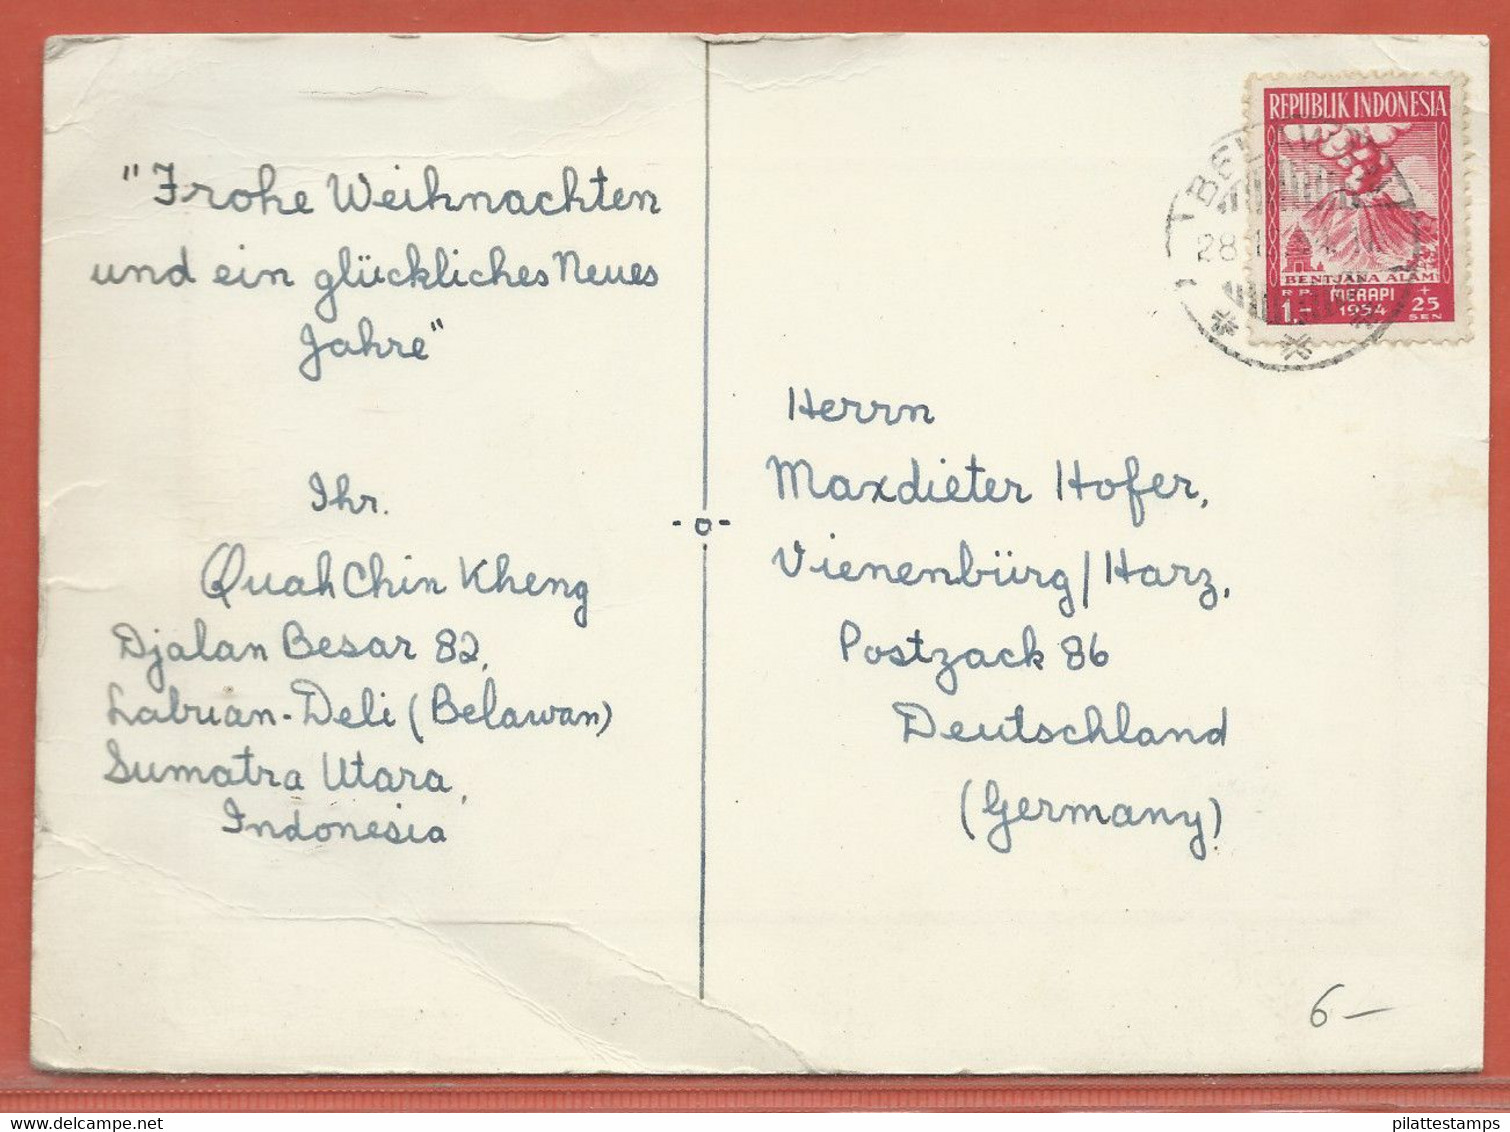 "Frohe Weihnachten
und ein glückliches Neues
Jahre"
Ihr.
Quah Chin Kheng
Djalan Besar 82,
Labuan-Deli (Belawan)
Sumatra Utara,
Indonesia
REPUBLIK INDONESIA
BENTJANA ALAM
MERAPI
1954
RP. 1.- + 25 SEN
28
Herrn
Maxdieter Hofer,
Vienenbürg/Harz,
Postzack 86
Deutschland
(Germany)
6 —
pilattestamps